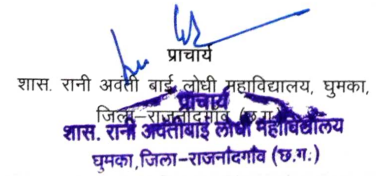 प्राचार्य
शास. रानी अवंती बाई लोधी महाविद्यालय, घुमका,
जिला-राजनांदगांव (छ.ग.)
प्राचार्य
शास. रानी अवंतीबाई लोधी महाविद्यालय
घुमका, जिला-राजनांदगाँव (छ.ग.)